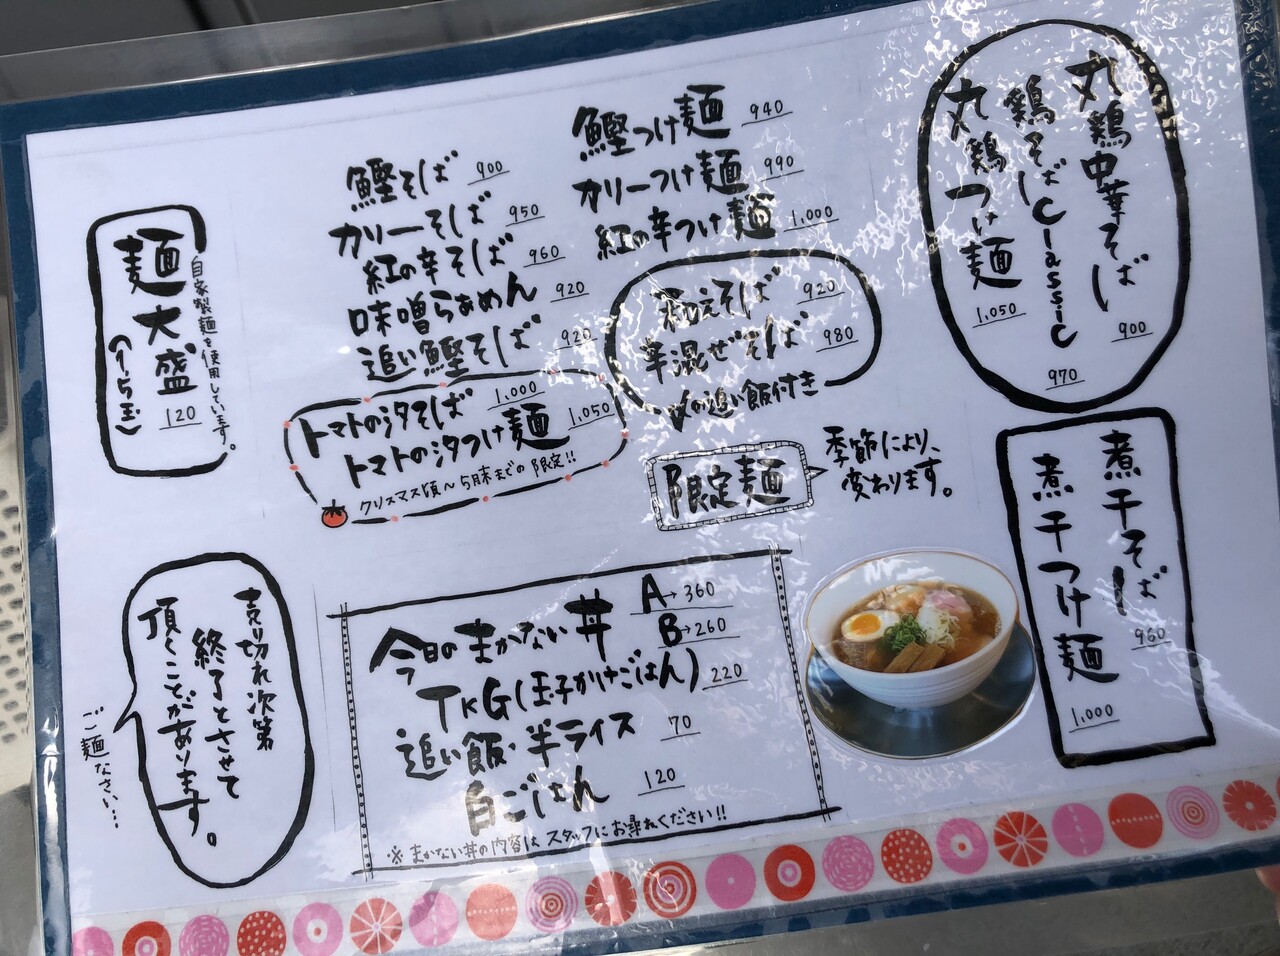 丸鶏中華そば 900
鶏そばClassic 970
丸鶏つけ麺 1,050
煮干そば 960
煮干つけ麺 1,000
鰹つけ麺 940
カリーつけ麺 990
紅の辛つけ麺 1,000
和えそば 920
辛混ぜそば 980
〆の追い飯付き
限定麺
季節により、
変わります。
鰹そば 900
カリーそば 950
紅の辛そば 960
味噌らぁめん 920
追い鰹そば 920
トマトのシタそば 1,000
トマトのシタつけ麺 1,050
クリスマス頃〜5月末までの限定!!
自家製麺を使用しています。
麺大盛 120
(1.5玉)
今日のまかない丼 A→360
B→260
TKG(玉子かけごはん) 220
追い飯・半ライス 70
白ごはん 120
※まかない丼の内容はスタッフにお尋ねください!!
売り切れ次第
終了とさせて
頂くことがあります。
ご麺なさい…